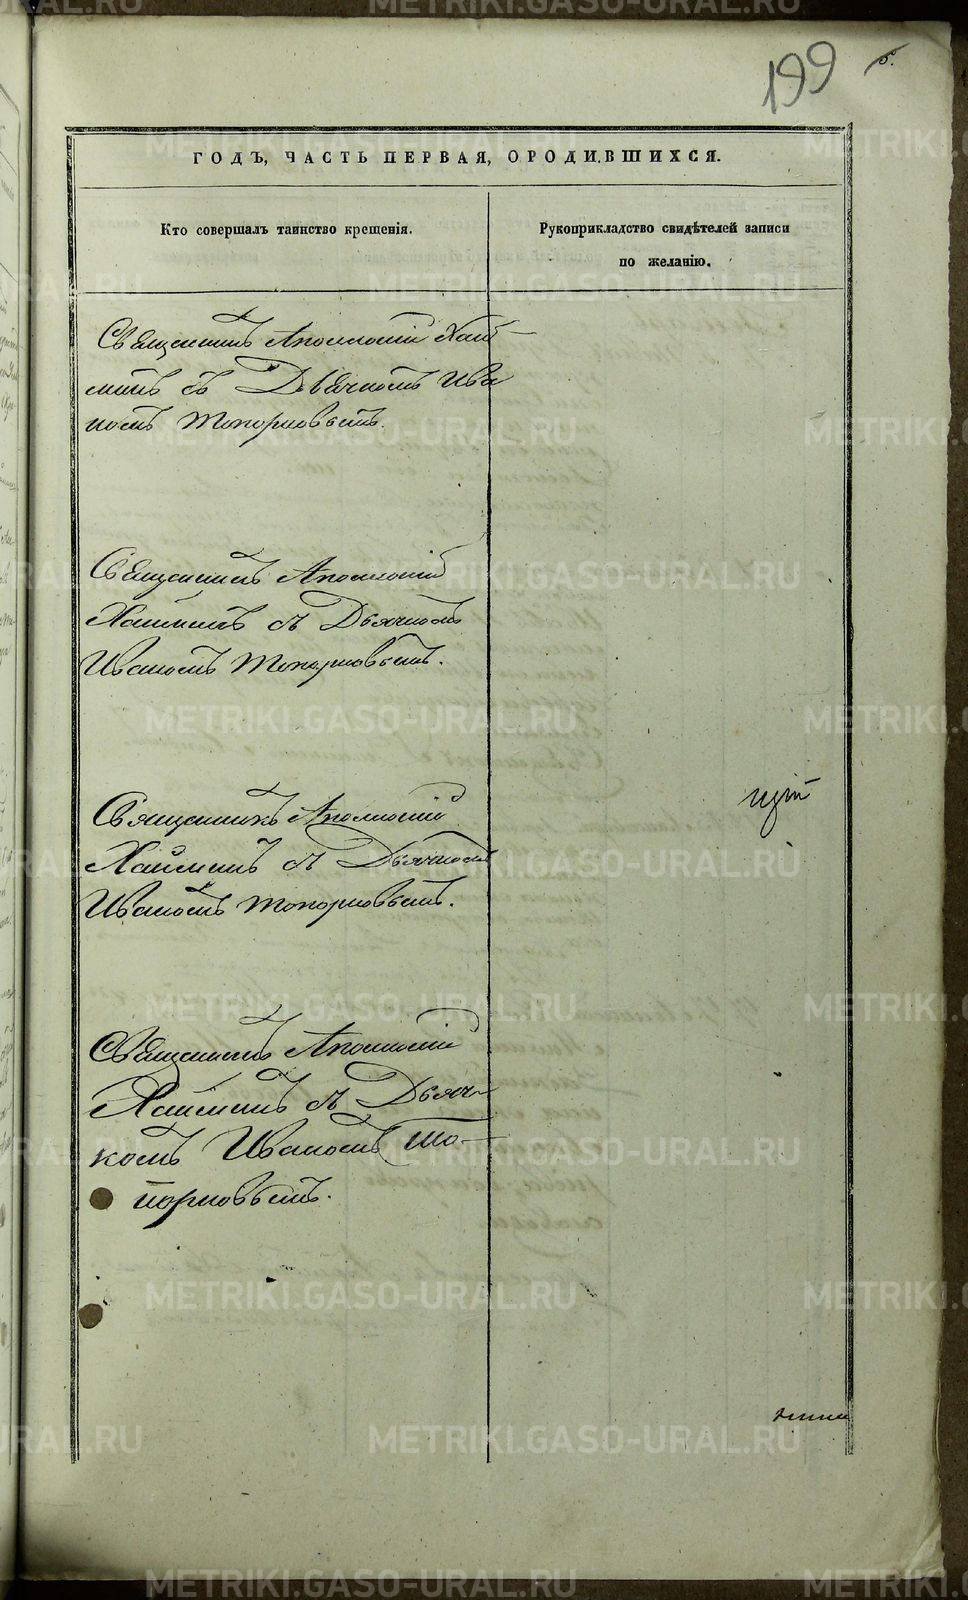 199
5.
ГОДЪ, ЧАСТЬ ПЕРВАЯ, О РОДИВШИХСЯ.
Кто совершалъ таинство крещенія.
Рукоприкладство свидѣтелей записи
по желанію.
Священникъ Аполлоній Хай
минъ съ Дьячкомъ Ива
номъ Топорковымъ.
Священникъ Аполлоній
Хайминъ съ Дьячкомъ
Иваномъ Топорковымъ.
Священникъ Аполлоній
Хайминъ съ Дьячкомъ
Иваномъ Топорковымъ.
Священникъ Аполлоній
Хайминъ съ Дьяч-
комъ Иваномъ То-
порковымъ.
METRIKI.GASO-URAL.RU